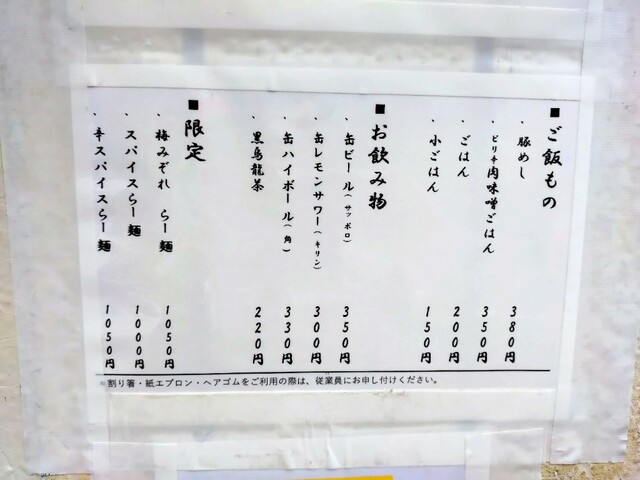 ■ご飯もの
・豚めし 380円
・ピリ辛肉味噌ごはん 350円
・ごはん 200円
・小ごはん 150円
■お飲み物
・缶ビール(サッポロ) 350円
・缶レモンサワー(キリン) 300円
・缶ハイボール(角) 330円
・黒烏龍茶 220円
■限定
・梅みぞれ らー麺 1050円
・スパイスらー麺 1000円
・辛スパイスらー麺 1050円
※割り箸・紙エプロン・ヘアゴムをご利用の際は、従業員にお申し付けください。